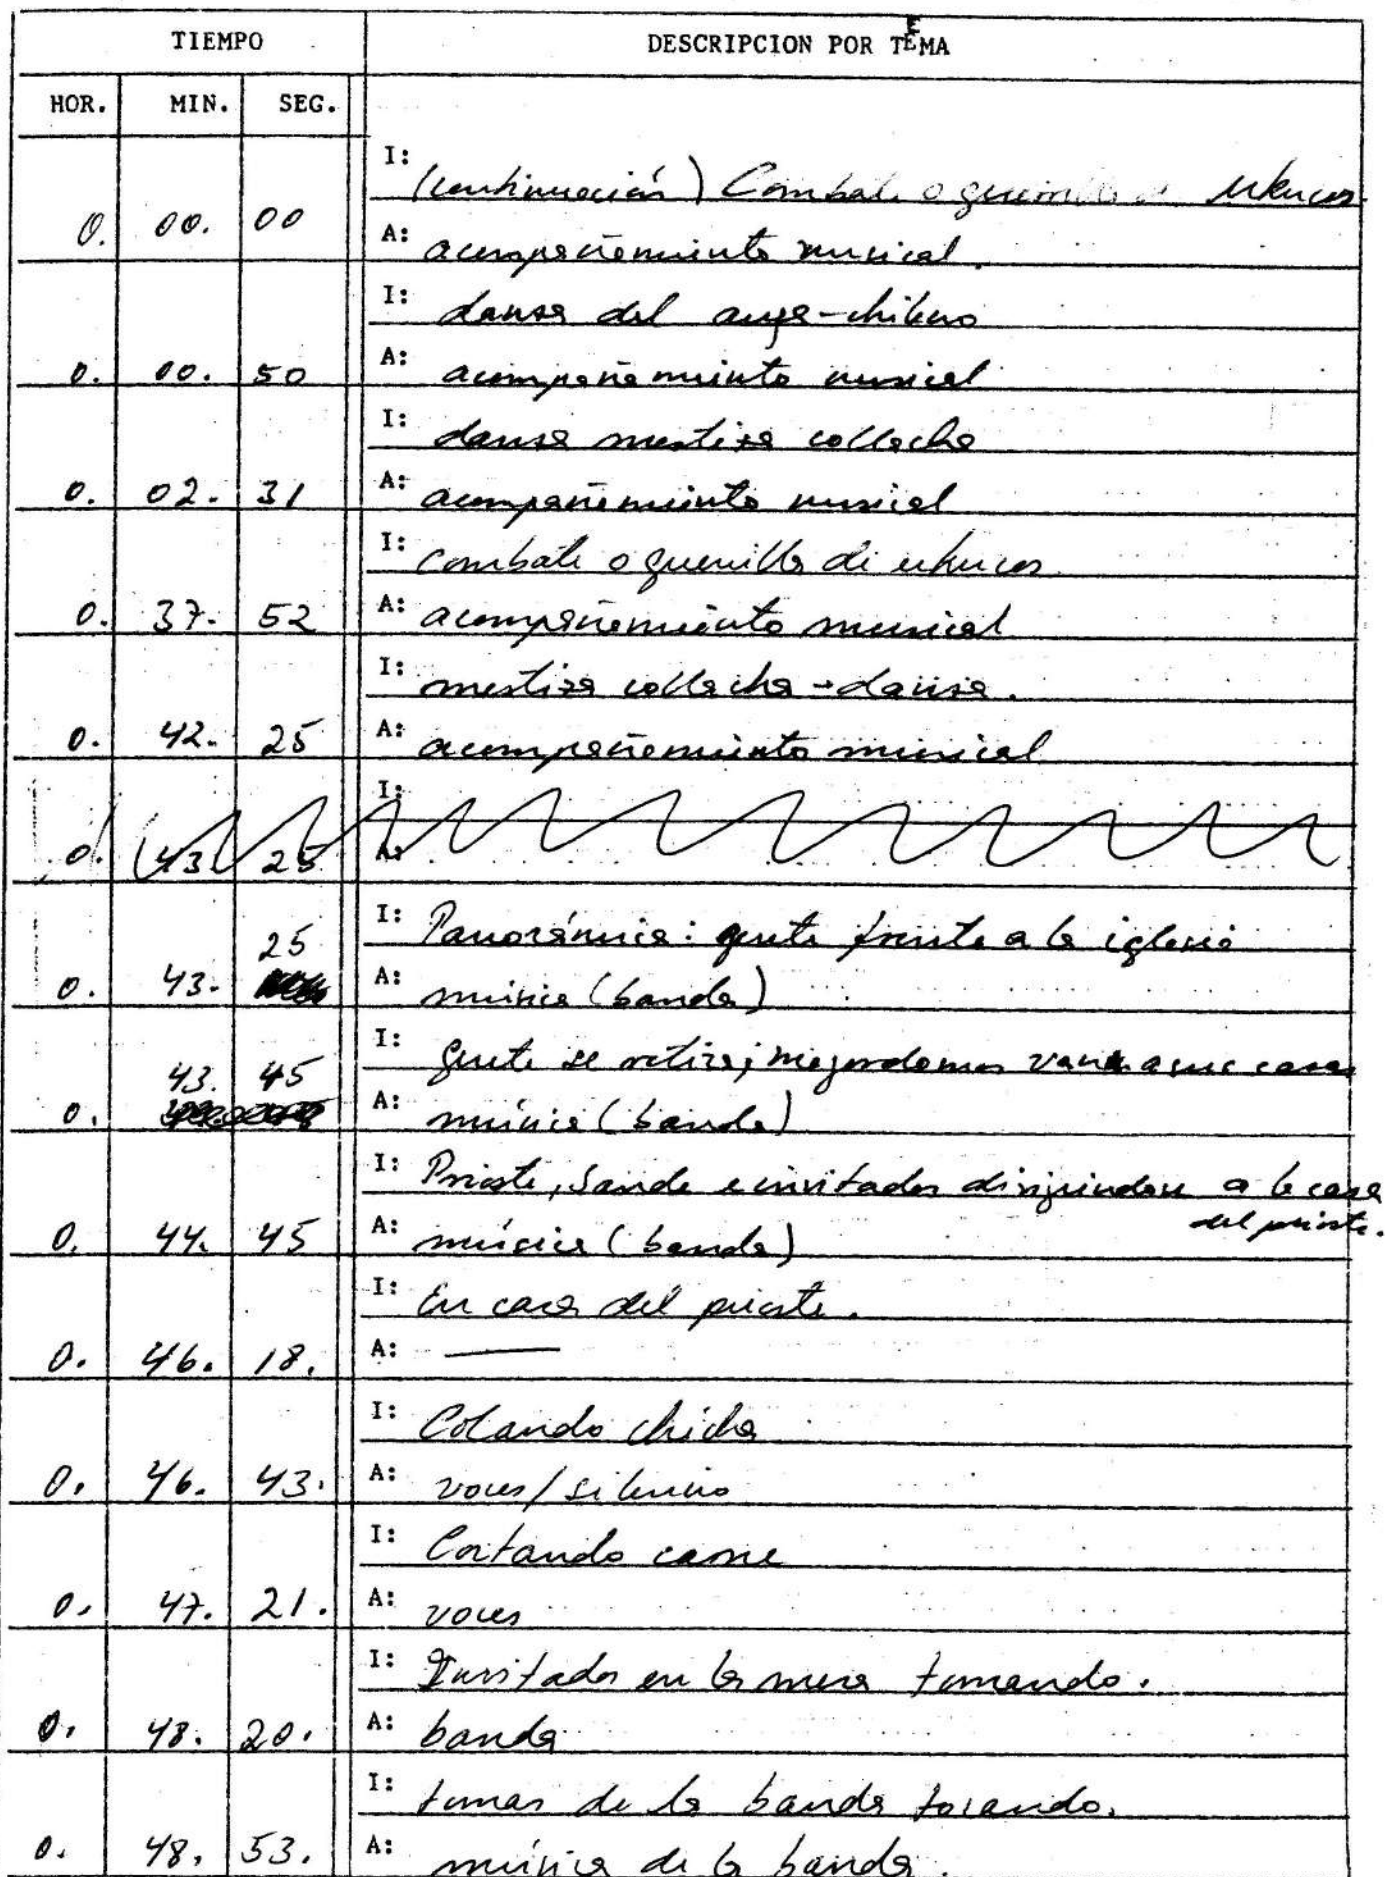 TIEMPO DESCRIPCION POR TEMA
HOR. MIN. SEG.
I: (continuación) Combate o guerrilla de ukucos.
0. 00. 00 A: acompañamiento musical.
I: danza del auqa-chileno
0. 00. 50 A: acompañamiento musical
I: danza mestiza collacha
0. 02. 31 A: acompañamiento musical
I: Combate o guerrilla de ukucos
0. 37. 52 A: acompañamiento musical
I: mestiza collacha - danza.
0. 42. 25 A: acompañamiento musical
I:
0. 43. 25 A:
I: Panorámica: gente frente a la iglesia
25
0. 43. A: música (banda)
I: gente se retira; mayordomos van a sus casas
43. 45
0. A: música (banda)
I: Prioste, banda e invitados dirigiendose a la casa
del prioste.
0. 44. 45 A: música (banda)
I: En casa del prioste.
0. 46. 18. A: —
I: Colando chicha
0. 46. 43. A: voces/silencio
I: Cortando carne
0. 47. 21. A: voces
I: Invitados en la mesa tomando.
0. 48. 20. A: banda
I: tomas de la banda tocando.
0. 48. 53. A: música de la banda.